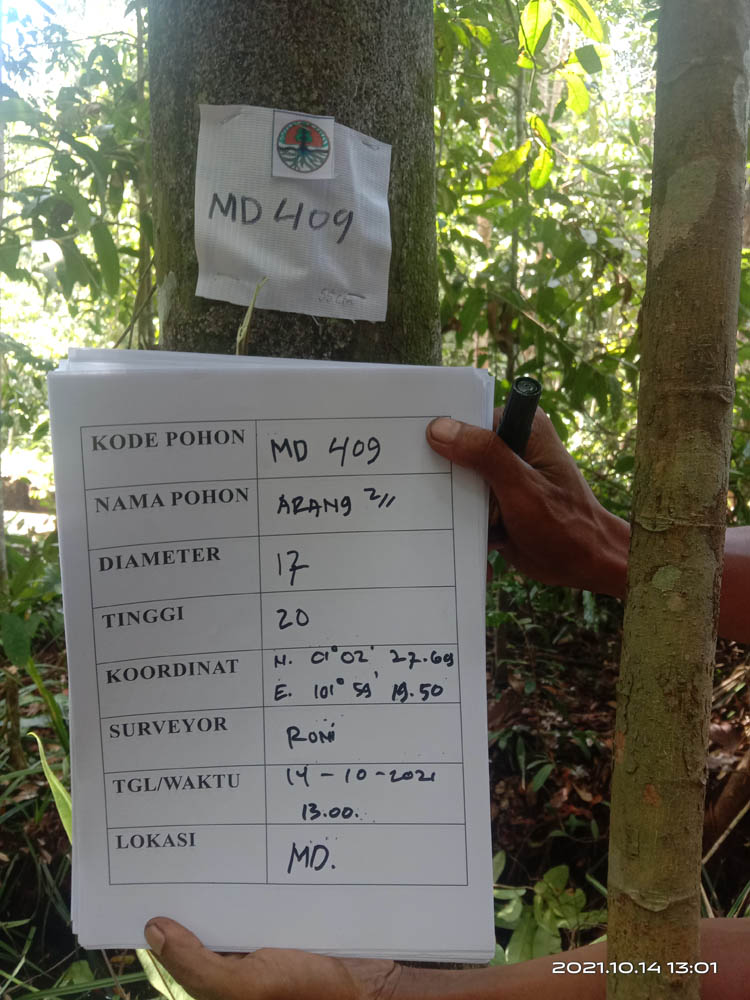 MD 409
55 cm
KODE POHON MD 409
NAMA POHON ARANG 2//
DIAMETER 17
TINGGI 20
KOORDINAT N. 01° 02' 27.69
E. 101° 59' 19.50
SURVEYOR RONI
TGL/WAKTU 14 - 10 - 2021
13.00.
LOKASI MD.
2021.10.14 13:01